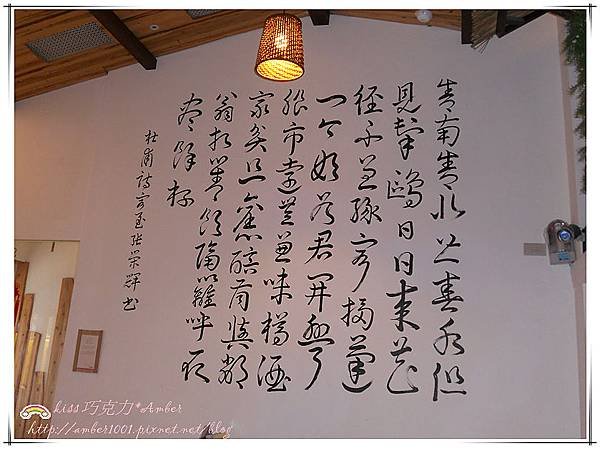 舍南舍北皆春水但
見羣鷗日日來花
徑不曾緣客掃蓬
門今始為君開盤
飧市遠無兼味樽酒
家貧只舊醅肯與鄰
翁相對飲隔籬呼取
盡餘杯
杜甫詩客至張榮群書
kiss巧克力*Amber
http://amber1001.pixnet.net/blog